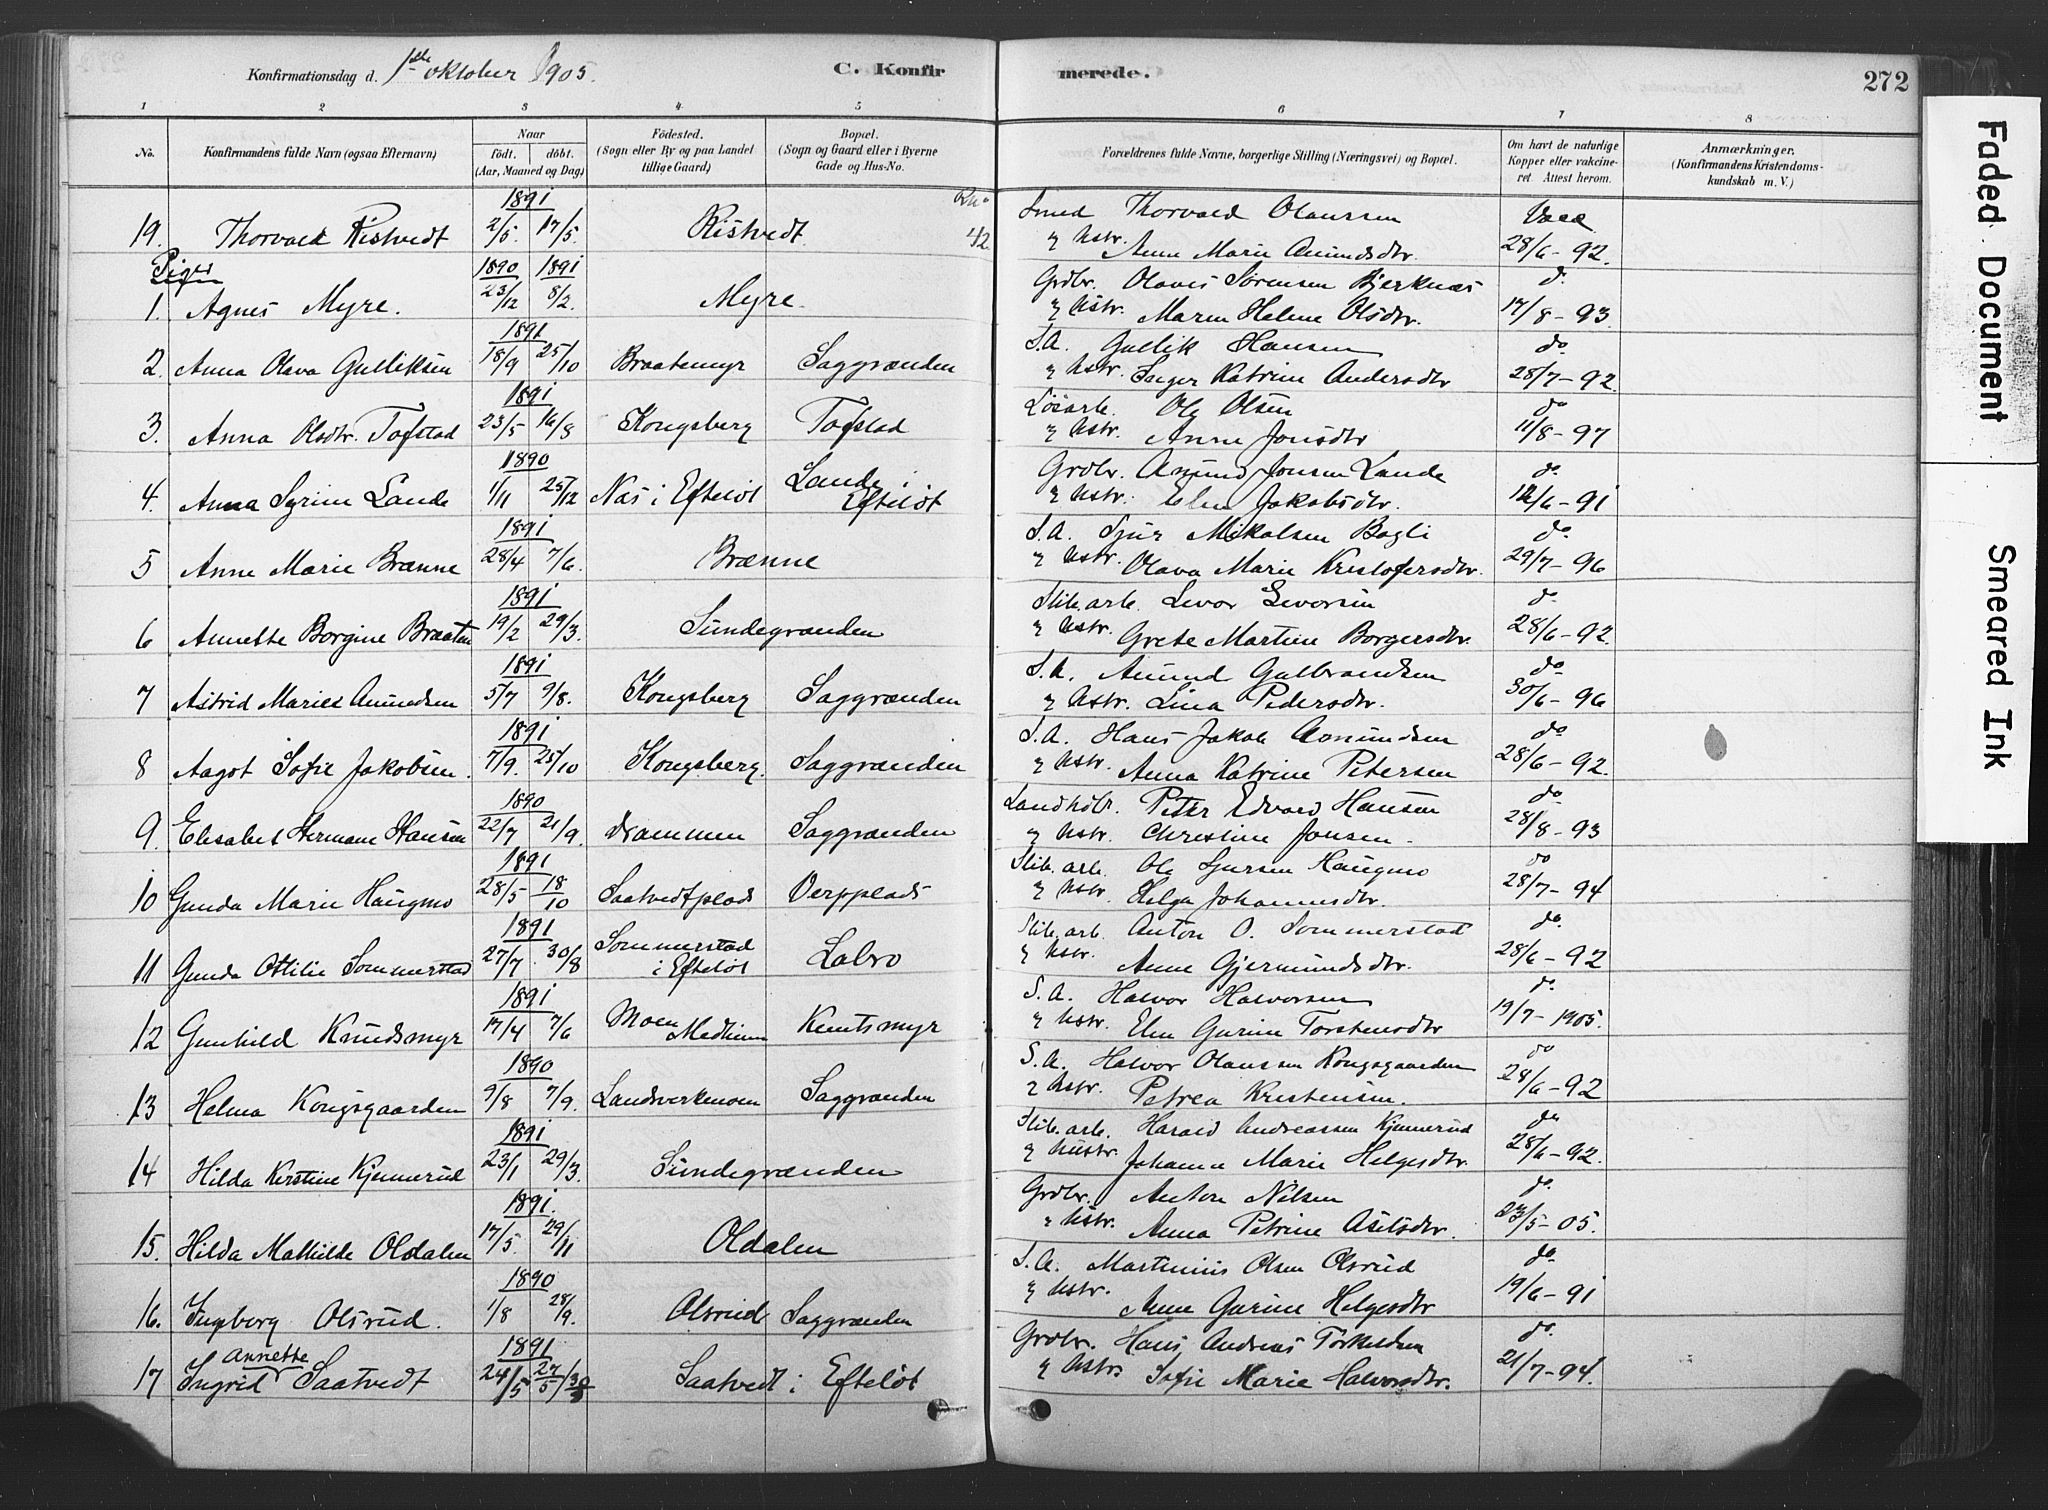 Konfirmationsdag d. 1ste oktober 1905. C. Konfirmerede. 272
1 2 3 4 5 6 7 8
No. Konfirmandens fulde Navn (ogsaa Efternavn) Naar födt. döbt. (Aar, Maaned og Dag) Födested. (Sogn eller By og paa Landet tillige Gaard) Bopæl. (Sogn og Gaard eller i Byerne Gade og Hus-No. Forældrenes fulde Navne, borgerlige Stilling (Næringsvei) og Bopæl. Om havt de naturlige Kopper eller vakcineret. Attest herom. Anmærkninger. (Konfirmandens Kristendomskundskab m. V.)
1891
19. Thorvald Ristvedt 2/5. 17/5. Ristvedt 42 Smed Thorvald Olaussen Vacc
& Hstr. Anne Marie Amundsdtr. 28/6-92.
Piger
1890 1891
1. Agnes Myre. 23/12 8/2. Myre. Grdbr. Olaves Sørensen Bjerknæs do
& Hstr. Maren Helene Olsdtr. 17/8-93.
1891
2. Anna Olava Gulliksen 18/9 25/10 Braatemyr Saggrænden S.A. Gullik Hansen do
& Hstr. Inger Katrine Andersdtr 28/7-92.
1891
3. Anna Olsdtr. Tofstad 23/5 16/8 Kongsberg Tofstad Løsarb. Ole Olsen do
& Hstr. Anne Jonsdtr 11/8-97
1890
4. Anna Syrine Lande 1/11 25/12 Næs i Efteløt Lande i Efteløt Grdbr. Amund Jonsen Lande do
& Hstr. Elen Jakobsdtr. 12/6-91
1891
5 Anne Marie Brænne 28/4 7/6. Brænne S.A. Sjur Mikalsen Bagli do
& Hstr. Olava Marie Kristofersdtr. 29/7-96
1891
6 Annette Borgine Braaten 19/2 29/3. Sundegrænden Slib.arb. Levor Levorsen do
& Hstr. Grete Martine Borgersdtr. 28/6-92.
1891
7 Astrid Maries Amundsen 5/7 9/8. Kongsberg Saggrænden S.A. Amund Gulbrandsen do
& Hstr. Lina Pedersdtr. 30/6-96
1891
8 Aagot Sofie Jakobsen. 7/9. 25/10 Kongsberg. Saggrænden S.A. Hans Jakob Amundsen do
& Hstr. Anna Katrine Petersen 28/6-92.
1890
9. Elisabet Hermane Hansen 22/7 21/9. Drammen Saggrænden Landhdl. Peter Edvard Hansen do
& Hstr. Christine Jonsen. 28/8-93
1891
10 Gunda Marie Haugmo 28/5 18/10 Saatvedtplads Verpplads Slib.arb. Ole Sjursen Haugmo do
& Hstr. Helga Johannesdtr. 28/7-94
1891
11 Gunda Ottilie Sommerstad 27/7. 30/8 Sommerstad i Efteløt Labro Slib.arb. Anton O. Sommerstad do.
& Hstr. Anne Gjermundsdtr. 28/6-92
1891
12 Gunhild Knudsmyr 17/4 7/6 Moen Medheim Knutsmyr S.A. Halvor Halvorsen do
& Hstr. Elen Gurine Torstensdtr 19/7-1905.
1890
13 Helma Kongsgaarden 9/8 7/9. Landverkmoen Saggrænden S.A. Halvor Olaussen Kongsgaarden do
& Hstr. Petrea Kristensen. 28/6-92
1891
14 Hilda Kirstine Kjennerud 23/1 29/3. Sundegrænden Slib.arb. Harald Andreassen Kjennerud do
& Hustr. Johanna Marie Helgesdtr. 28/6-92.
1891.
15. Hilda Mathilde Oldalen 17/5. 29/11 Oldalen Grdbr. Anton Nilsen do
& Hstr. Anna Petrine Asletsdtr. 23/5-05.
1890
16. Ingborg Olsrud. 1/8 28/9. Olsrud Saggrænden S.A. Martinius Olsen Olsrud do
& Hstr. Anne Gurine Helgesdtr 19/6-91
1891
17 Ingrid Annette Saatvedt 24/5 27/5 Saatvedt i Efteløt Grdbr. Hans Andreas Torkeldsen do
& Hstr. Sofie Marie Halvorsdtr. 21/7-94.
Faded Document
Smeared Ink